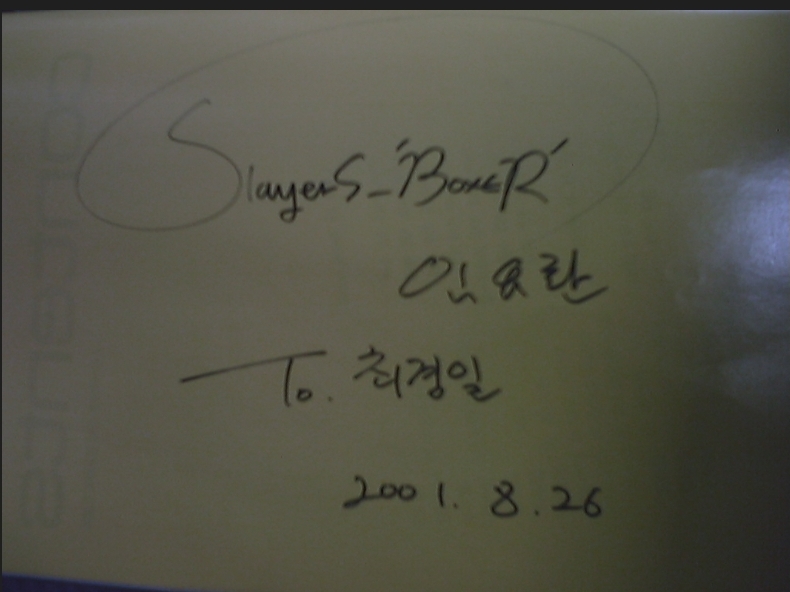 SlayerS_'BoxeR'
임요환
To. 최경일
2001. 8. 26